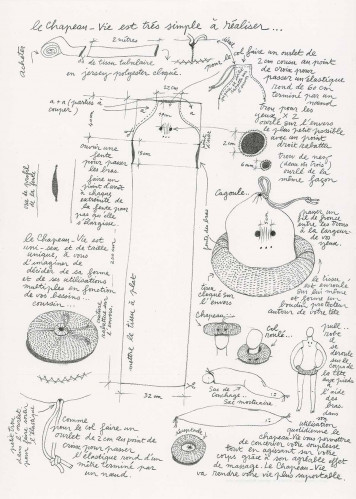 le Chapeau-Vie est très simple à réaliser...
acheter
2 mètres
de tissu tubulaire
en jersey polyester cloqué.
pour le col faire un ourlet de
2 cm cousu au point
de croix pour
passer un élastique
rond de 60 cm
terminé par un
nœud
22 cm
a + a (parties à
couper)
a
a
15 cm
ouvrir une
fente
pour passer
les bras
faire un
point d'arrêt
à chaque
extrémité de
la fente pour
pas qu'elle
s'élargisse.
trou pour les
yeux × 2
ourlé sur l'envers
le plus petit possible
avec un point
droit rabattu
2 cm
trou de nez
(deux très trous)
ourlé de la
même façon
6 mm
Cagoule...
passer un
fil de fronce
entre les trous
à la largeur
de vos
yeux.
le Chapeau-Vie est
uni-sexe et de taille
unique, à vous
d'imaginer de
décider de sa forme
et de ses utilisations
multiples en fonction
de vos besoins...
coussin...
200 cm
mettre le tissu à plat
32 cm
tissu
cloqué sur
l'envers
le tissu
est enroulé
sur lui même
et forme un
boudin protecteur
autour de votre tête
Chapeau...
Col
roulé...
pull..
robe
il se
déroule
sur le
corps de
la tête
aux pieds
à
l'aide
des
bras.
Sac de
couchage.
Sac mortuaire
comme
pour le col faire un
ourlet de 2 cm au point de
croix pour passer
l'élastique rond d'un
mètre terminé par
un nœud.
suspendu
dans son
utilisation
quotidienne le
Chapeau-Vie vous permettra
de construire votre souplesse
tout en agissant sur votre
corps grâce à son agréable effet
de massage. Le Chapeau-Vie
va rendre votre vie plus supportable.